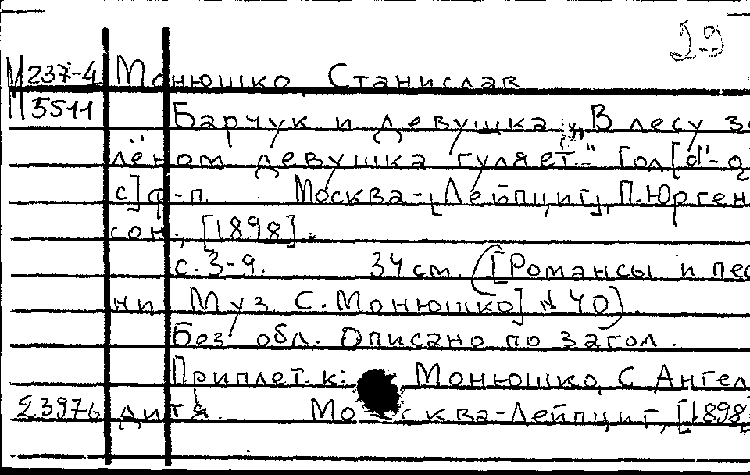 29
М237-4 Монюшко, Станислав
М5511
Барчук и девушка. „В лесу зе
лёном девушка гуляет." Гол[d'-g
с] ф-п. Москва-[Лейпциг], П.Юрген
сон, [1898].
с. 3-9. 34 см. ([Романсы и пес
ни Муз. С. Монюшко] № 40).
Без обл. Описано по загол.
Приплет. к: Монюшко, С. Ангел
23976 дитя. Москва-Лейпциг, [1898]